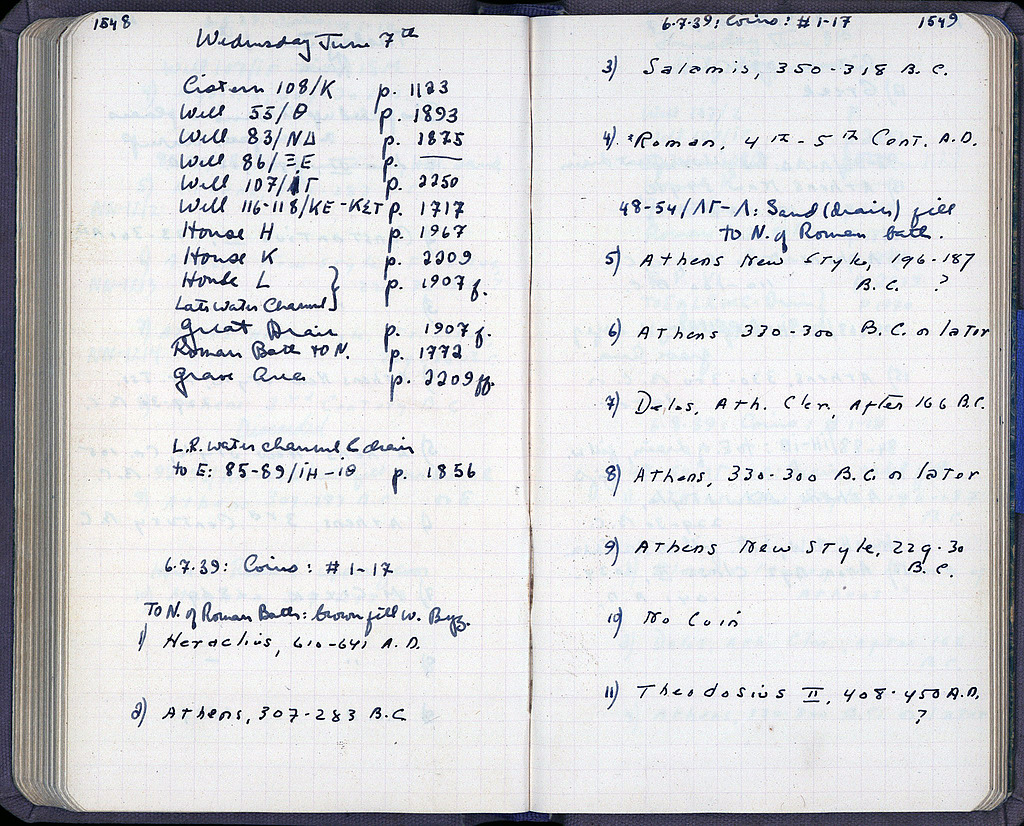 1548
Wednesday June 7th
Cistern 108/K p. 1123
Well 55/Θ p. 1893
Well 83/ΝΔ p. 1875
Well 86/ΞΕ p. —
Well 107/ΙΓ p. 2250
Well 116-118/ΚΕ-ΚΣΤ p. 1717
House H p. 1967
House K p. 2209
House L } p. 1907 f.
Late Water Channel
Great Drain p. 1907 f.
Roman Bath to N. p. 1772
Grave Area p. 2209 ff.
L.R. water channel & drain
to E: 85-89/ΙΗ-ΙΘ p. 1856
6.7.39: Coins: #1-17
To N. of Roman Bath: brown fill w. Byz.
1) Heraclius, 610-641 A.D.
2) Athens, 307-283 B.C.
6.7.39: Coins: #1-17 1549
3) Salamis, 350-318 B.C.
4) Roman, 4th-5th Cent. A.D.
48-54/ΛΓ-Λ: Sand (drain) fill
to N. of Roman bath.
5) Athens New Style, 196-187
B.C. ?
6) Athens 330-300 B.C. or later
7) Delos, Ath. Cler. After 166 B.C.
8) Athens, 330-300 B.C. or later
9) Athens New Style, 229-30
B.C.
10) No Coin
11) Theodosius II, 408-450 A.D.
?